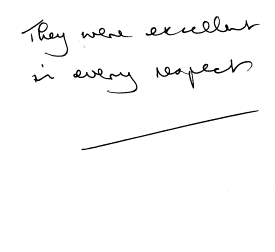 They were excellent
in every respect